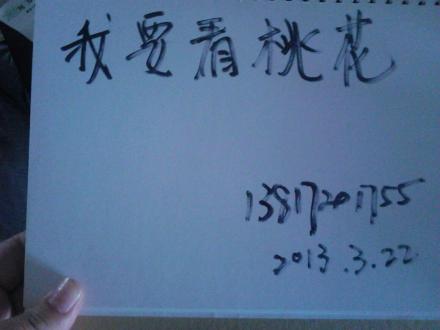 我要看桃花
13817201755
2013.3.22